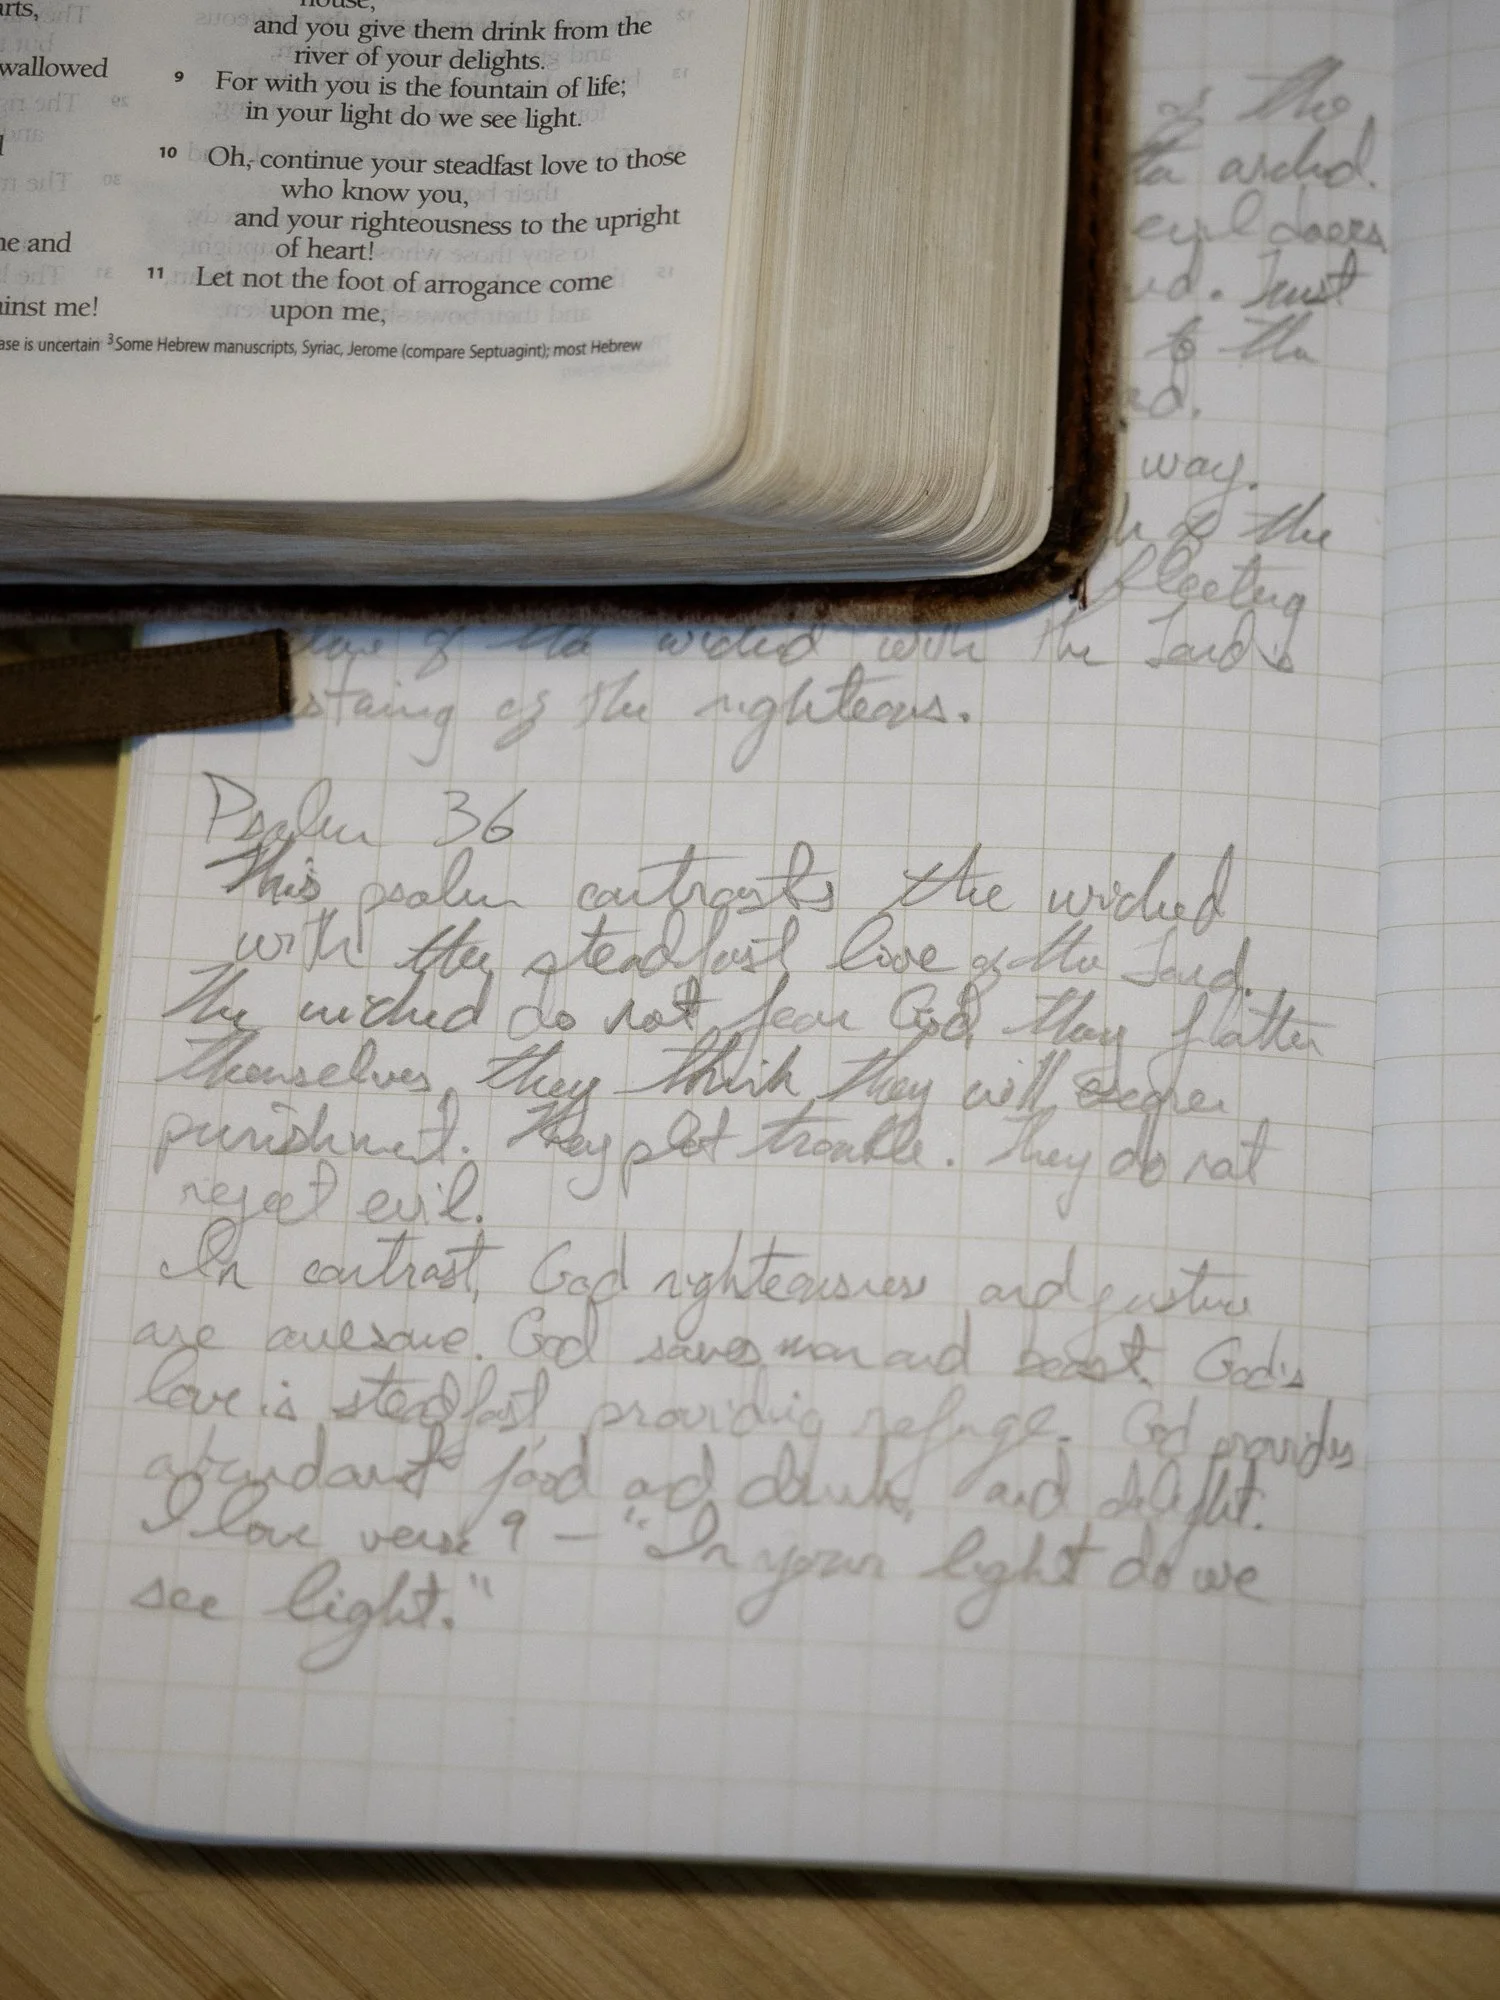 arts,
wallowed
ne and
ainst me!
house,
and you give them drink from the
river of your delights.
9 For with you is the fountain of life;
in your light do we see light.
10 Oh, continue your steadfast love to those
who know you,
and your righteousness to the upright
of heart!
11 Let not the foot of arrogance come
upon me,
ase is uncertain 3Some Hebrew manuscripts, Syriac, Jerome (compare Septuagint); most Hebrew
of the
wicked.
evildoers
Trust
to the
way.
of the
fleeting
of the wicked with the Lord's
staing of the righteous.
Psalm 36
This psalm contrasts the wicked
with the steadfast love of the Lord.
The wicked do not fear God, they flatter
themselves, they think they will escape
punishment. They plot trouble. They do not
reject evil.
In contrast, God righteousness and justice
are awesome. God saves man and beast. God's
love is steadfast, providing refuge. God provides
abundant food and drink, and delight.
I love verse 9 — "In your light do we
see light."